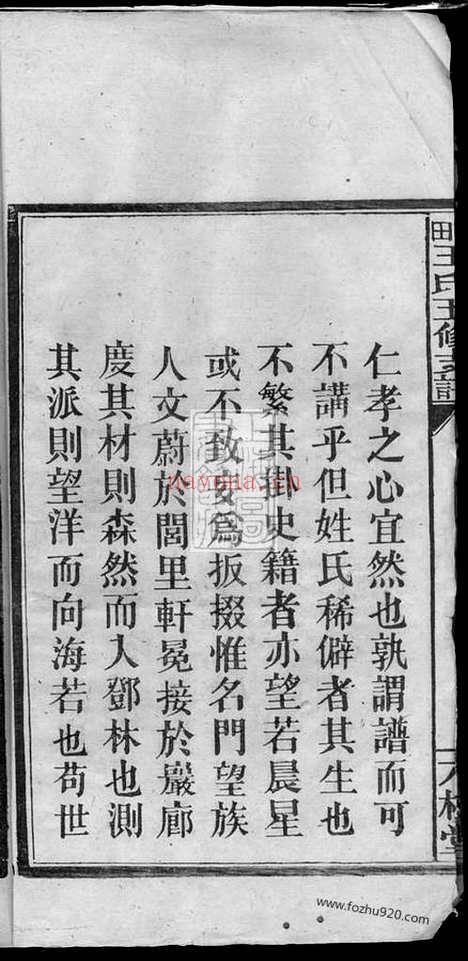 仁孝之心宜然也孰謂譜而可
不講乎但姓氏稀僻者其生也
不繁其掛史籍者亦望若晨星
或不致妄爲扳掇惟名門望族
人文蔚於閭里軒冕接於巖廊
度其材則森然而入鄧林也測
其派則望洋而向海若也苟世
nayuna.cn
www.fozhu920.com